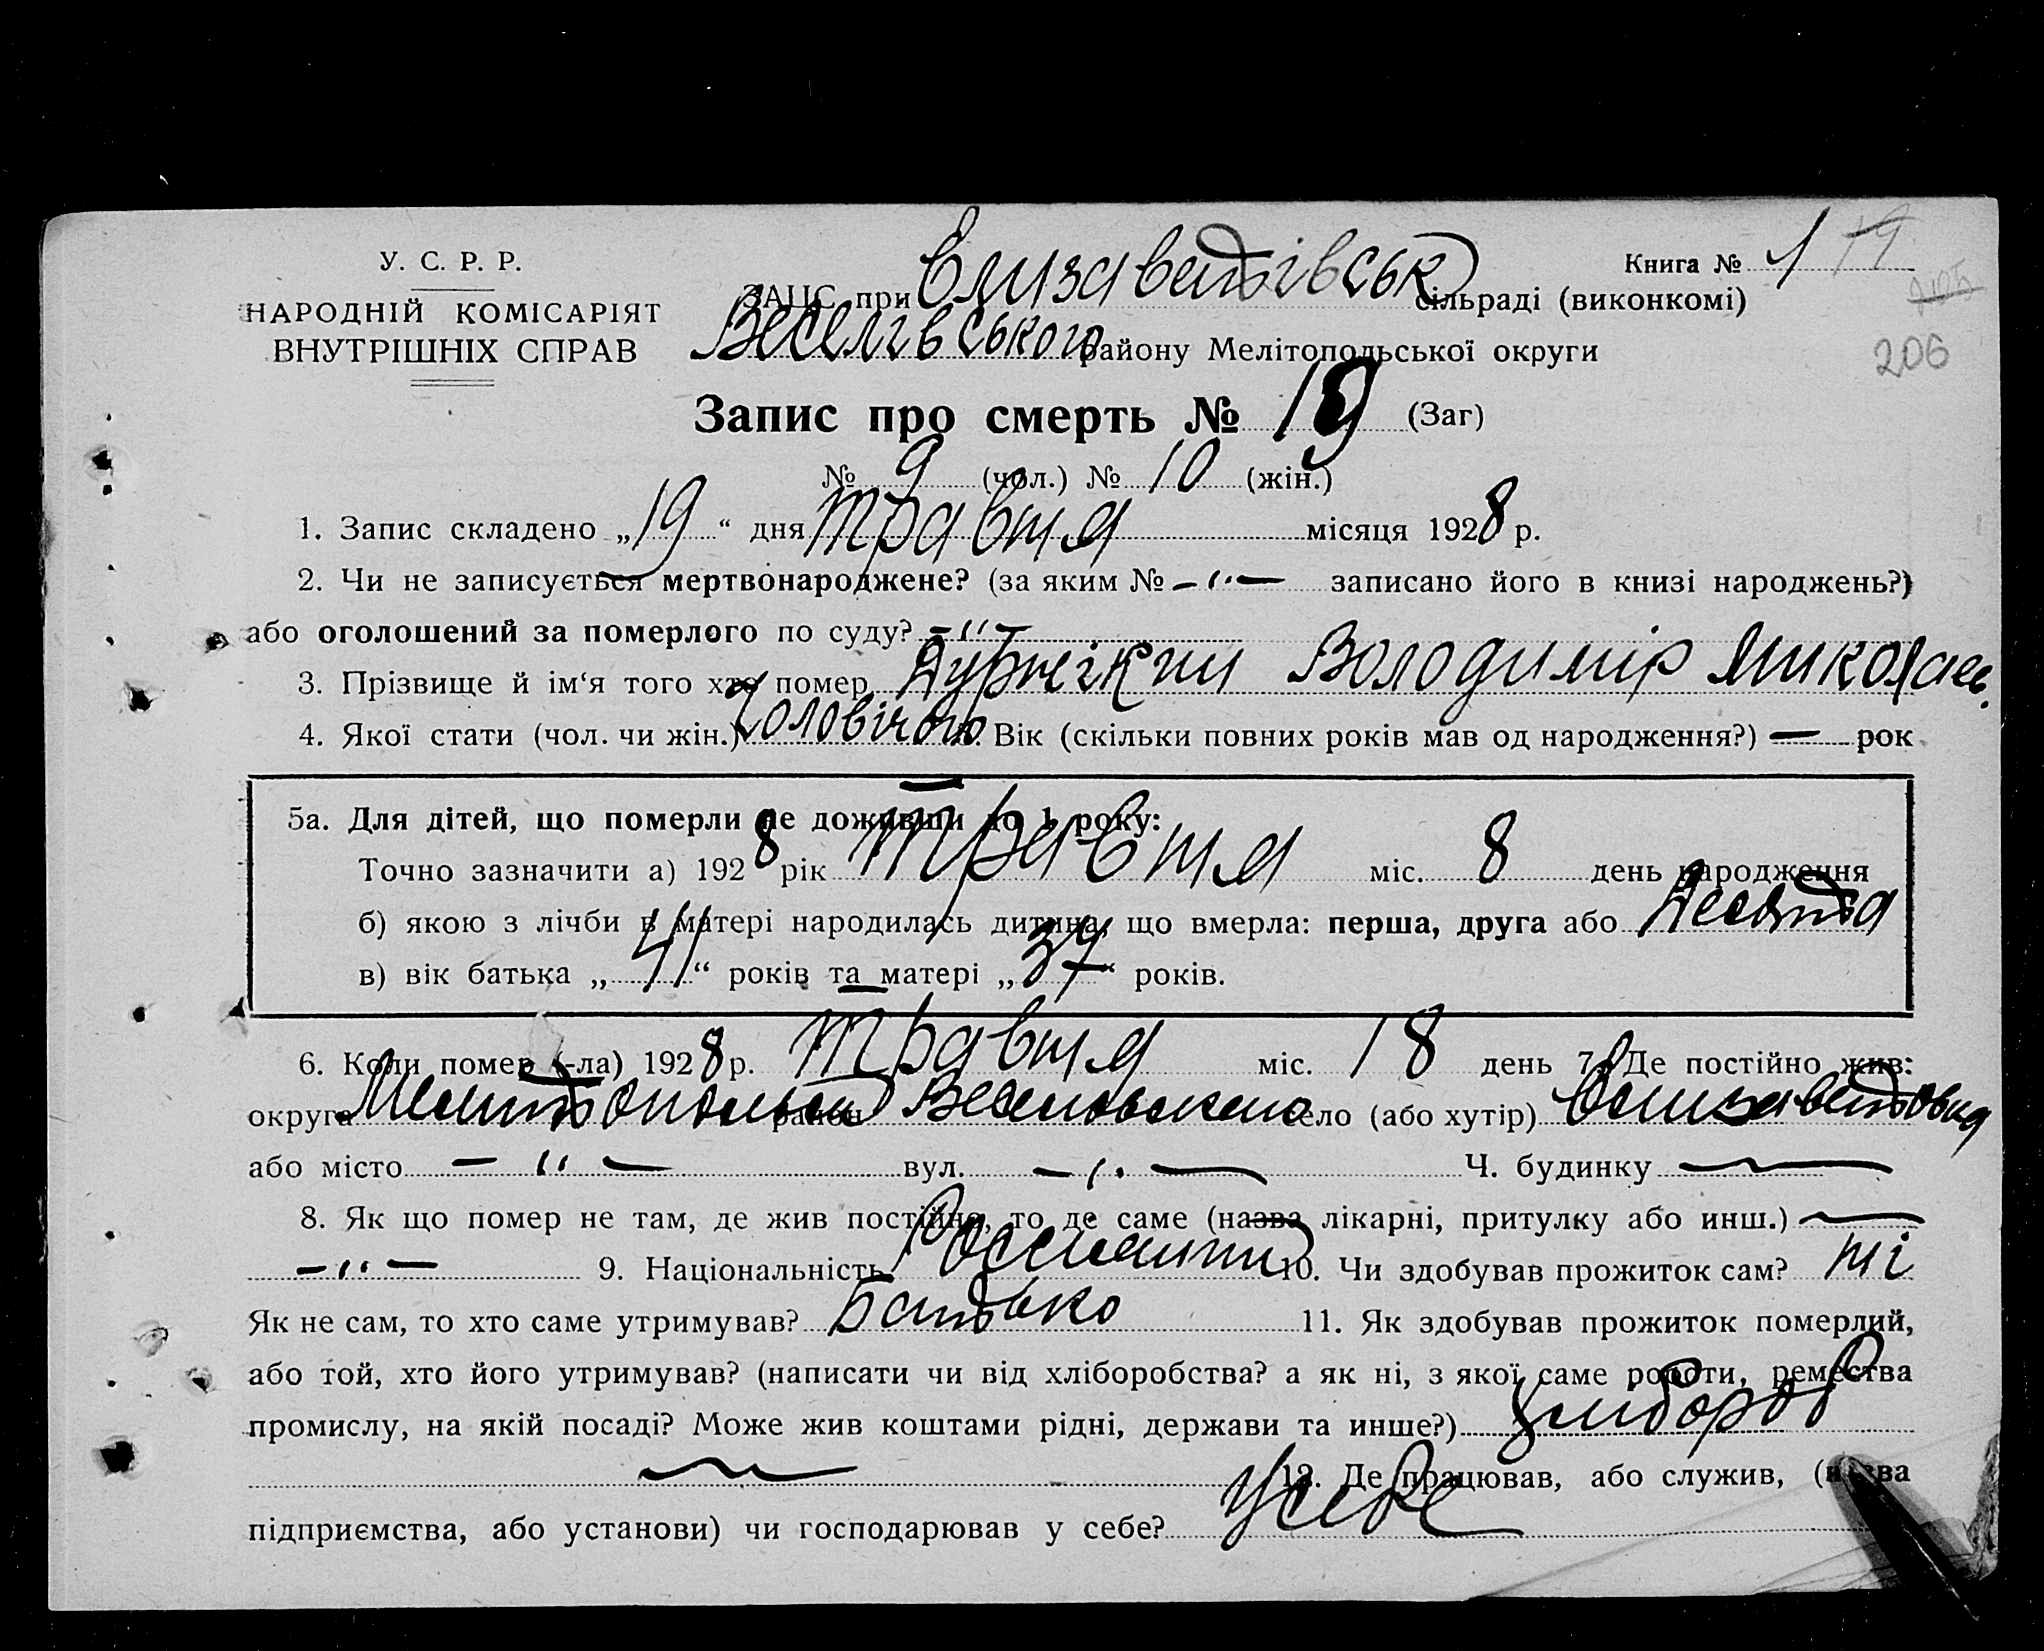 У. С. Р. Р.
НАРОДНІЙ КОМІСАРІЯТ
ВНУТРІШНІХ СПРАВ
ЗАЦС при Єлизаветівськ сільраді (виконкомі)
Книга № 1
Веселівського району Мелітопольської округи
206
Запис про смерть № 19 (Заг)
№ 9 (чол.) № 10 (жін.)
1. Запис складено „19“ дня травня місяця 1928 р.
2. Чи не записується мертвонароджене? (за яким № -"- записано його в книзі народжень?)
або оголошений за померлого по суду? -"-
3. Прізвище й ім‘я того хто помер Володимір Миколаєв.
4. Якої стати (чол. чи жін.) Вік (скільки повних років мав од народження?) — рок
5а. Для дітей, що померли не доживши до 1 року:
Точно зазначити а) 1928 рік травня міс. 8 день народження
б) якою з лічби в матері народилась дитина, що вмерла: перша, друга або десята
в) вік батька „41“ років та матері „37“ років.
6. Коли помер (-ла) 1928 р. травня міс. 18 день 7. Де постійно жив:
округа район село (або хутір)
або місто -"- вул. -"- Ч. будинку —
8. Як що помер не там, де жив постійно, то де саме (назва лікарні, притулку або инш.) —
-"- 9. Національність 10. Чи здобував прожиток сам? ні
Як не сам, то хто саме утримував? Батько 11. Як здобував прожиток померлий,
або той, хто його утримував? (написати чи від хліборобства? а як ні, з якої саме роботи, ремества
промислу, на якій посаді? Може жив коштами рідні, держави та инше?) хлібороб
— 12. Де працював, або служив, (назва
підприємства, або установи) чи господарював у себе? У себе